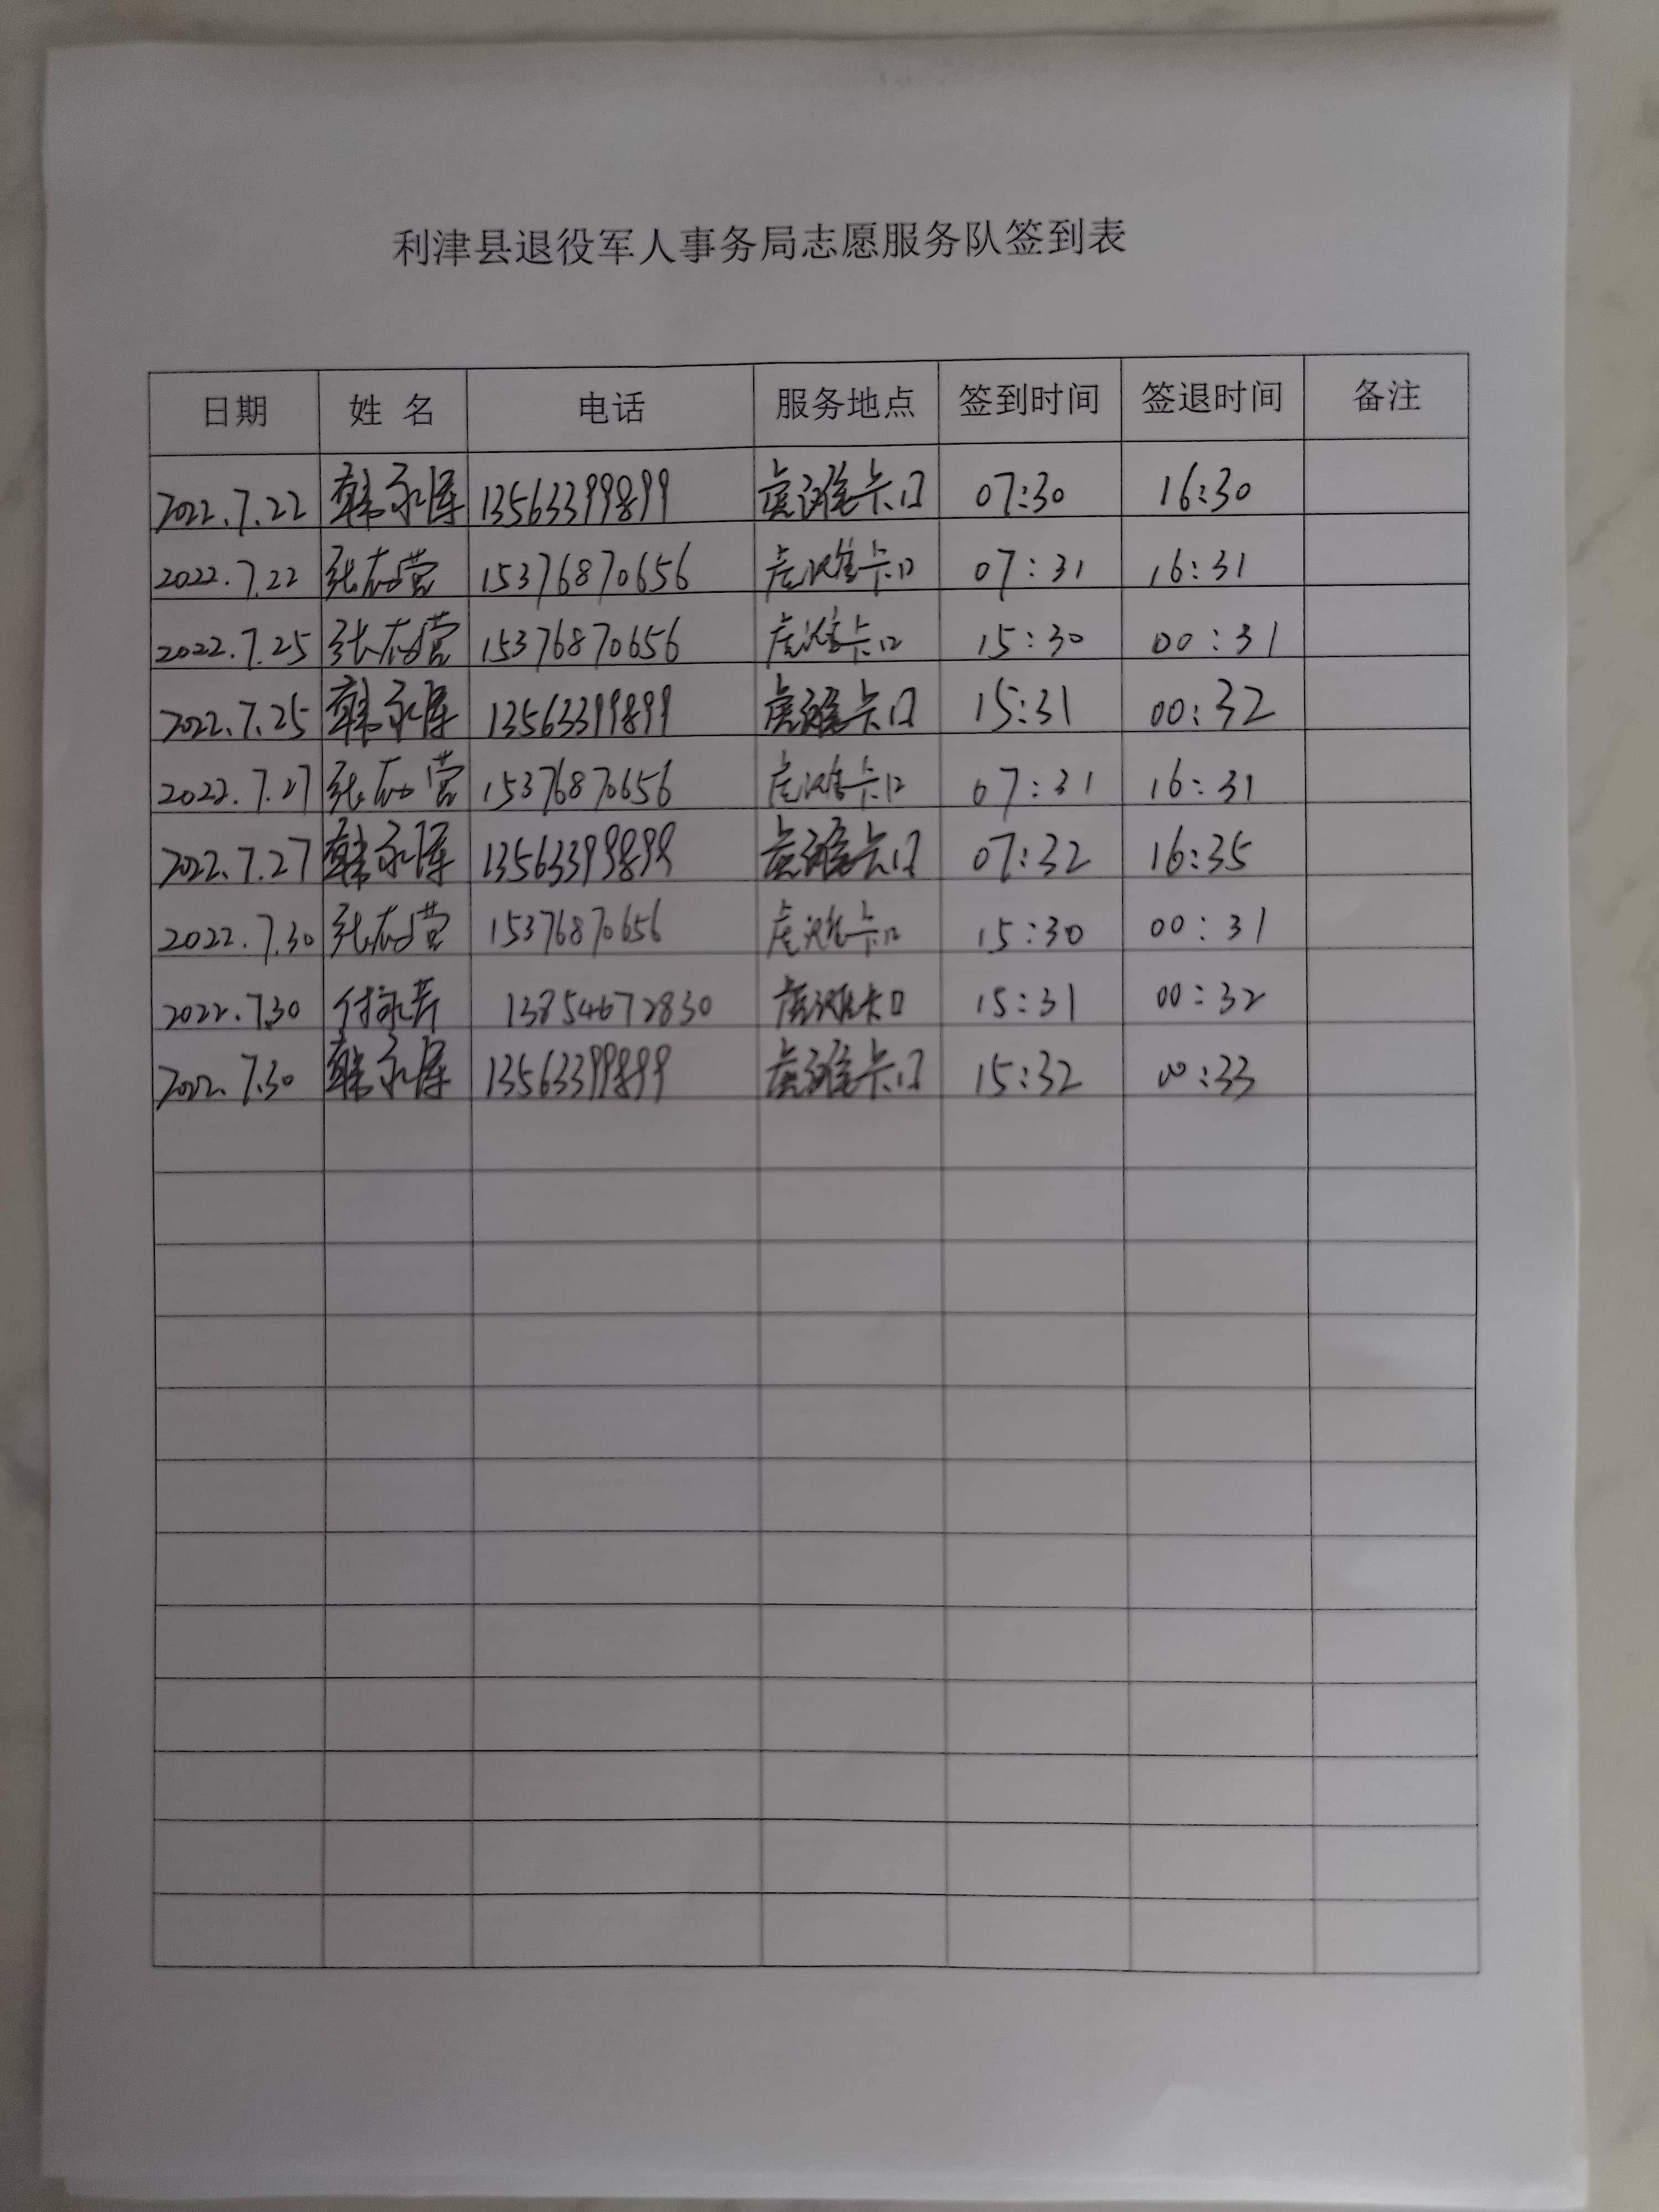 利津县退役军人事务局志愿服务队签到表
日期 姓 名 电话 服务地点 签到时间 签退时间 备注
2022.7.22 韩永厚 13563399899 虎滩卡口 07:30 16:30
2022.7.22 张志营 15376870656 虎滩卡口 07:31 16:31
2022.7.25 张志营 15376870656 虎滩卡口 15:30 00:31
2022.7.25 韩永厚 13563399899 虎滩卡口 15:31 00:32
2022.7.27 张志营 15376870656 虎滩卡口 07:31 16:31
2022.7.27 韩永厚 13563399899 虎滩卡口 07:32 16:35
2022.7.30 张志营 15376870656 虎滩卡口 15:30 00:31
2022.7.30 付永芹 13854672830 虎滩卡口 15:31 00:32
2022.7.30 韩永厚 13563399899 虎滩卡口 15:32 00:33